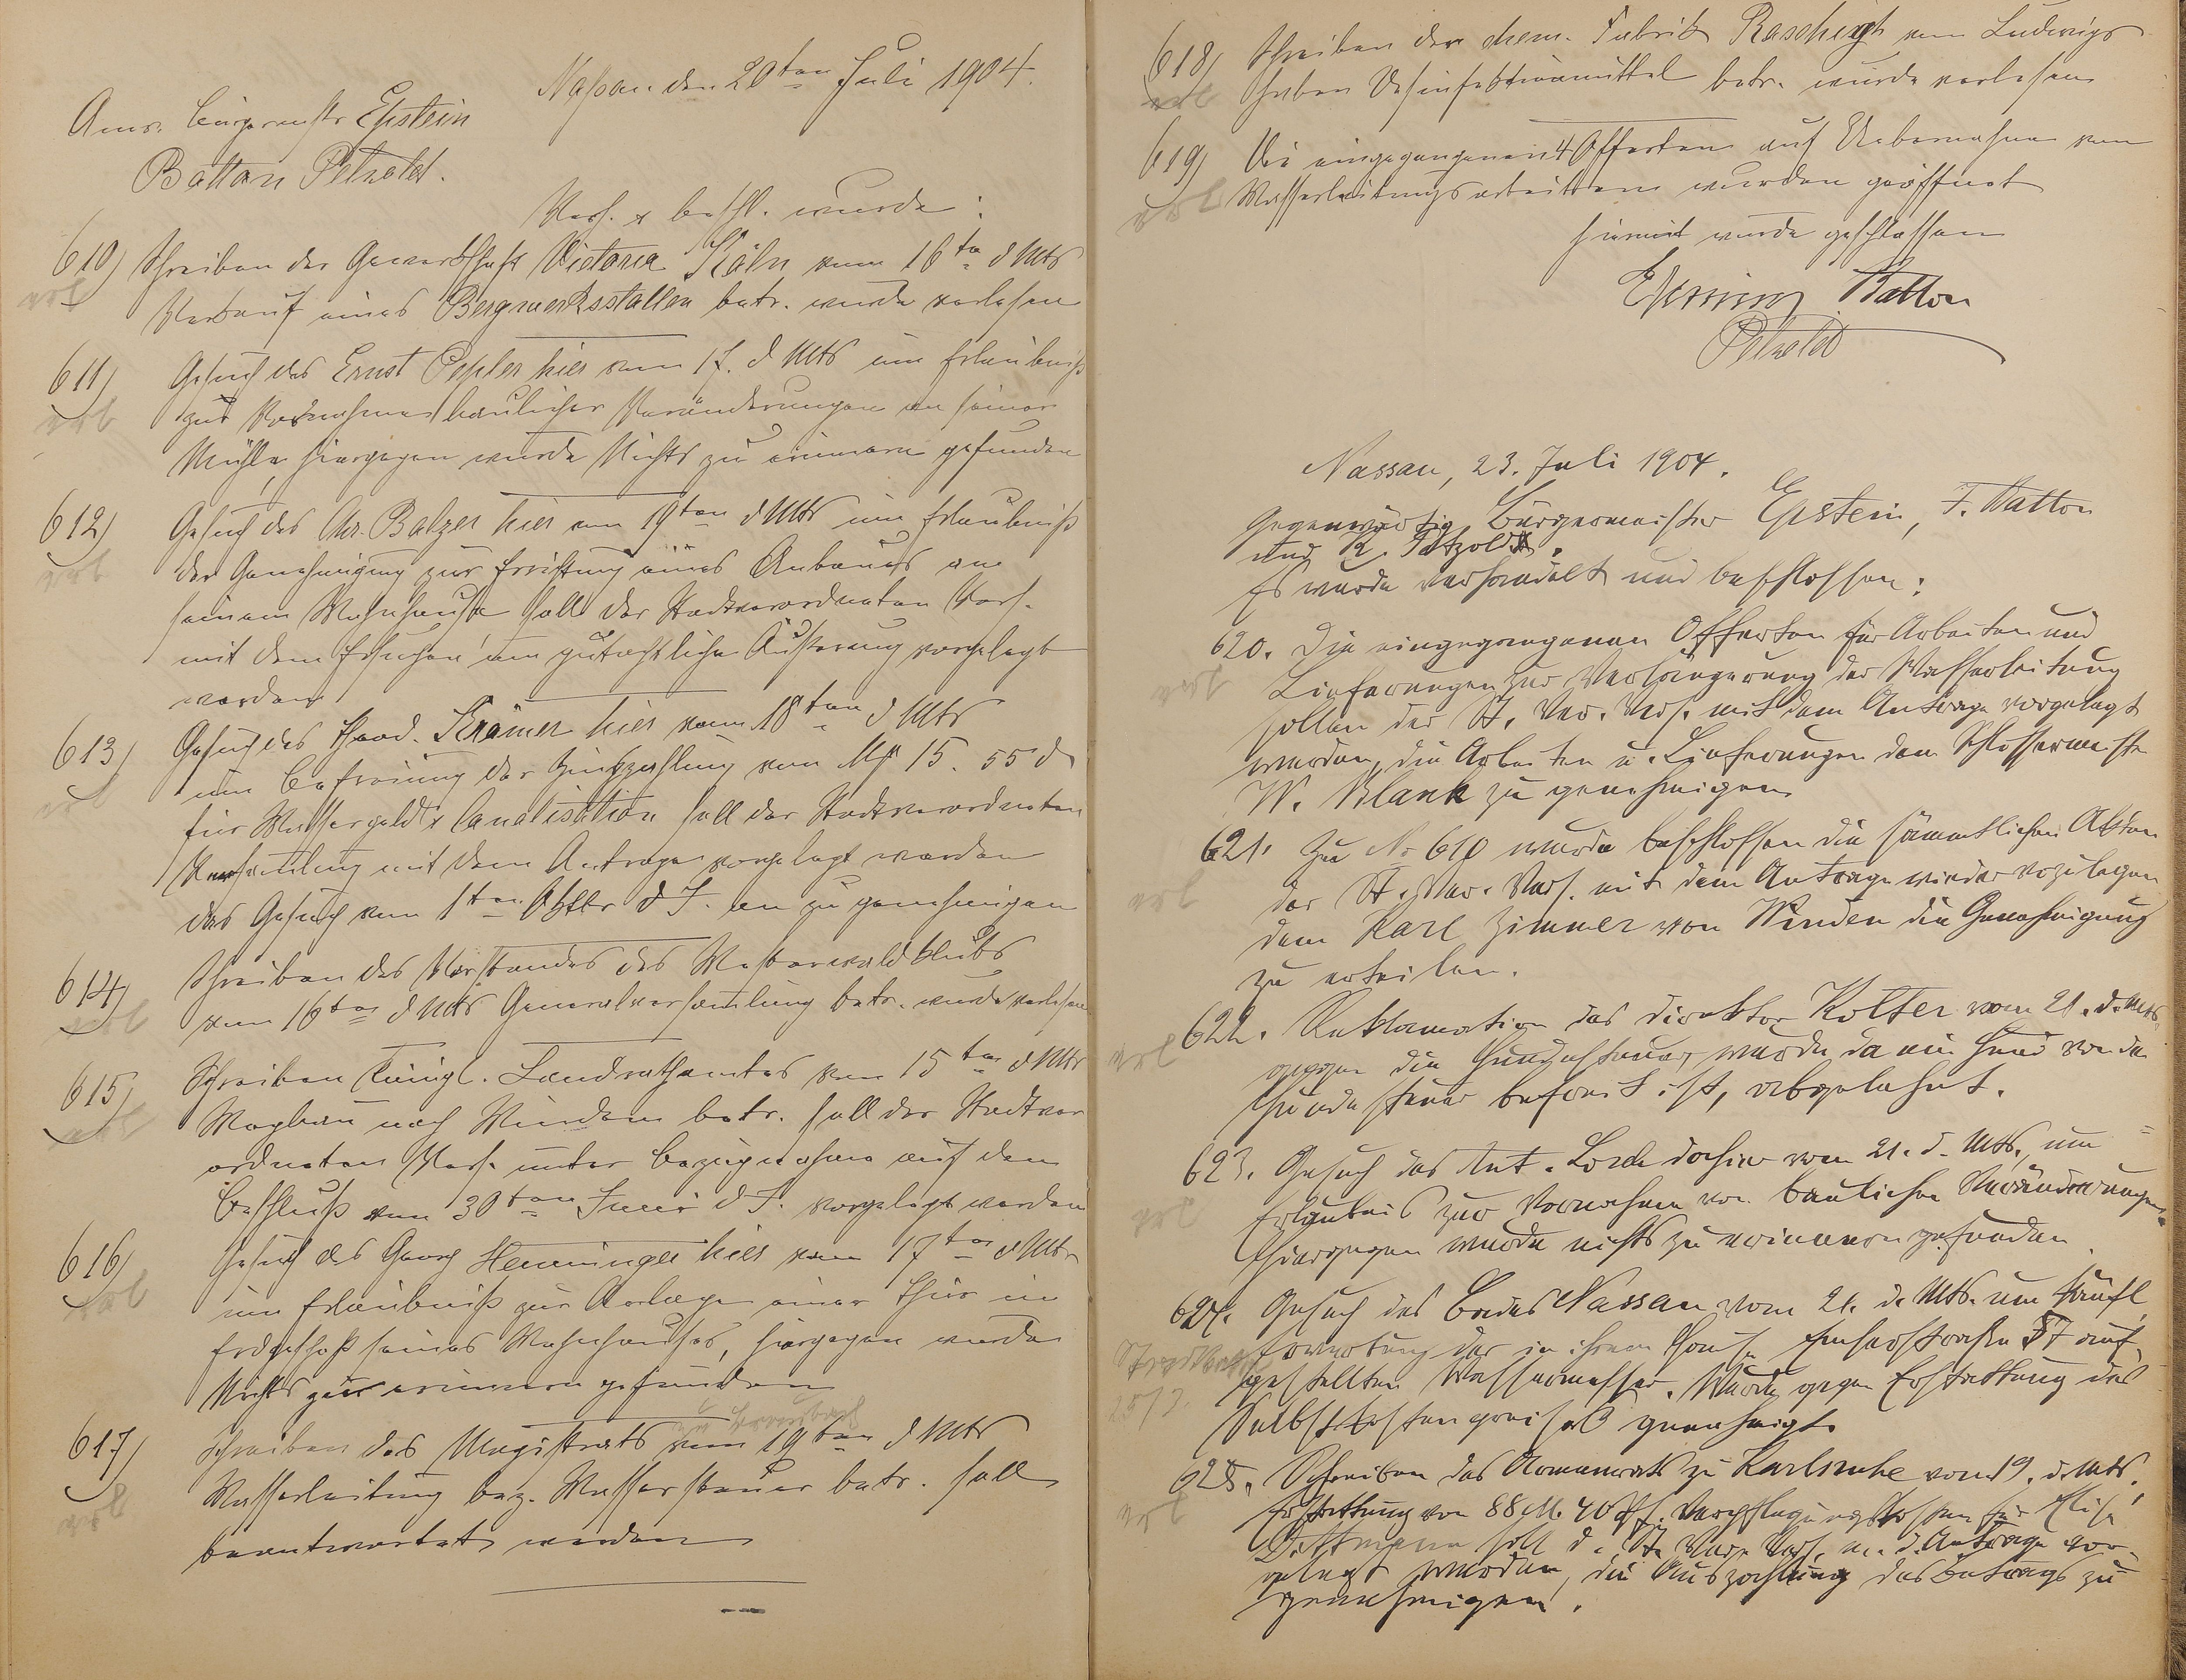 Nassau den 20ten Juli 1904.
Anw. Bürgermstr Epstein
Batton Petzold.
Verh. & beschl. wurde:
610) Schreiben der Gewerkschaft Victoria Köln vom 16ten d Mts
erl
Verkauf eines Bergwerksstollen betr. wurde verlesen
611) Gesuch des Ernst hier vom 17. d Mts um Erlaubniß
erl
zur Vornahme baulicher Veränderungen an seiner
Mühle, hiergegen wurde Nichts zu erinnern gefunden
612) Gesuch des Chr. Balzer hier vom 19ten d Mts um Erlaubniß
erl
der Genehmigung zur Errichtung eines Anbaues an
seinem Wohnhause soll der Stadtverordneten Vers.
mit dem Ersuchen um gutachtliche Äußerung vorgelegt
werden
613) Gesuch des Krämer hier vom 18ten d Mts
erl
um Befreiung der Zinszahlung von Mk 15. 55 d
für Wassergeld & Canalisation soll der Stadtverordneten
Versamlung mit dem Antrage vorgelegt werden
das Gesuch vom 1ten d J. an zu genehmigen
614) Schreiben des Vorstandes des Westerwaldklubs
erl
vom 16ten d Mts Generalversamlung betr. wurde verlesen
615) Schreiben Königl. Landrathsamtes vom 15ten d Mts
erl
Wegbau nach Winden betr. soll der Stadtver
ordneten Vers. unter Bezugnahme auf den
Beschluß vom 30ten Juni d J. vorgelegt werden
616) Gesuch des Georg Henninger hier vom 17ten d Mts
erl
um Erlaubniß zur Anlage einer Thür im
Erdgeschoß seines Wohnhauses, hiergegen wurde
Nichts zu erinnern gefunden
617) Schreiben des Magistrats vom 19ten d Mts
erl
Wasserleitung bez. Wassersteuer betr. soll
beantwortet werden
618) Schreiben der chem. Fabrik Raschig vom Ludwigs
erl
hafen Desinfektionsmittel betr. wurde verlesen
619) Die eingegangenen 4 Offerten auf Uebernahme von
erl
Wasserleitungsarbeiten wurden geöffnet
hiermit wurde geschlossen
Epstein Batton
Petzold
Nassau, 23. Juli 1904.
Gegenwärtig Bürgermeister Epstein, F. Batton
und R. Petzold.
Es wurde verhandelt und beschlossen:
620. Die eingegangenen Offerten für Arbeiten und
erl
Lieferungen zur Verlängerung der Wasserleitung
sollen der St. Ver. Vers. mit dem Antrage vorgelegt
werden, die Arbeiten u. Lieferungen dem Schlossermeister
W. Blank zu genehmigen
621. Zu No 610 wurde beschlossen die sämmtlichen Akten
erl
der St. Ver. Vers. mit dem Antrage wieder vorzulegen
dem Karl Zimmer von Winden die Genehmigung
zu erteilen.
622. Reklamation des Direktor Kolter vom 21. d. Mts.
erl
gegen die Hundesteuer, wurde da ein Hund von der
Hundesteuer befreit ist, abgelehnt.
623. Gesuch des Ant. Lorch dahier vom 21. d. Mts., um
erl
Erlaubnis zur Vornahme von baulichen Veränderungen
Hiergegen wurde nichts zu erinnern gefunden
624. Gesuch des Bades Nassau vom 21. d. Mts. um käufl.
Erwerbung der in ihrem Hause Emserstraße 57 auf
25/7.
gestellten Wassermesser. Wurde gegen Erstattung des
Selbstkostenpreises genehmigt.
625. Schreiben des Armenrats zu Karlsruhe vom 19. d. Mts.,
erl
Erstattung von 88 M. 40 Pf. Verpflegungskosten für Elise
Dittmann soll d. St. Ver. Vers. m. d. Antrage vor-
gelegt werden, die Auszahlung des Betrags zu
genehmigen.